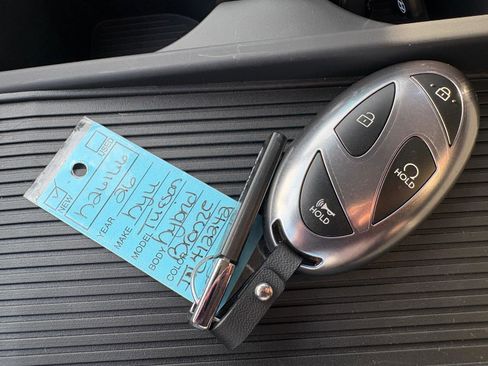 NEW USED
h26166
YEAR 26
MAKE hyu
MODEL Tucson
BODY hybrid
COLOR Bronze
HOLD
HOLD